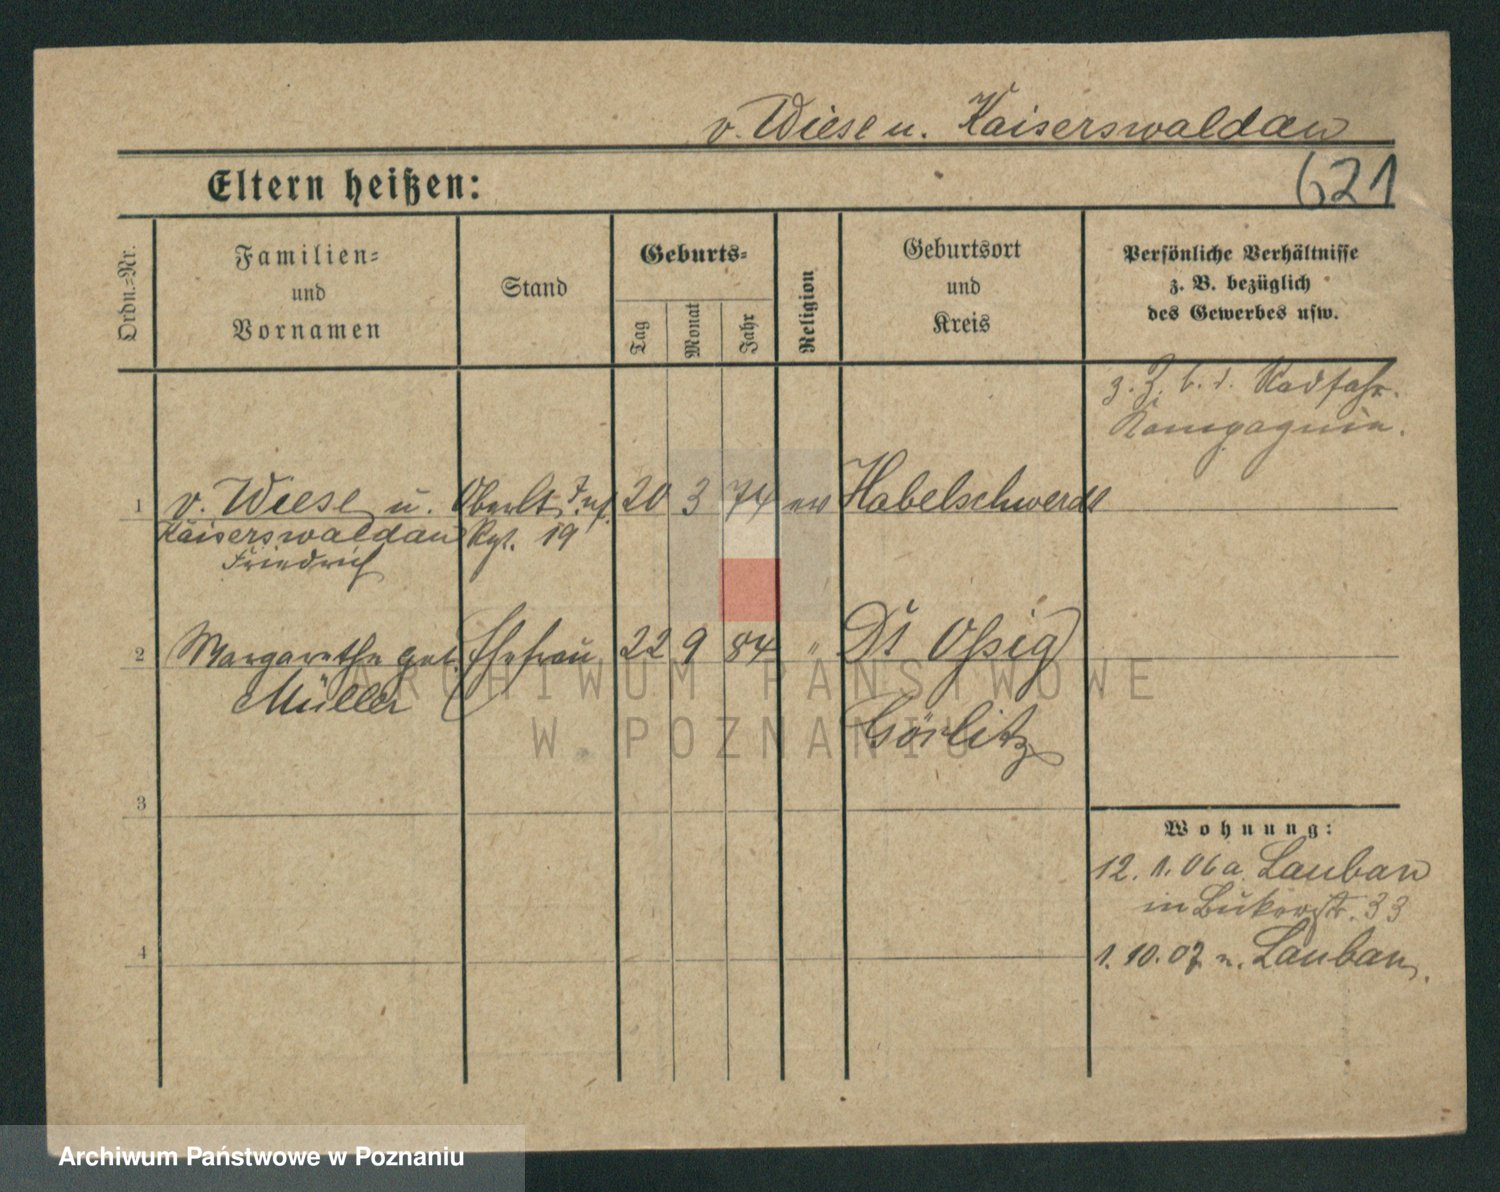 v. Wiese u. Kaiserswaldau
Eltern heißen:
621
Ordn.=Nr.
Familien=
und
Vornamen
Stand
Geburts=
Tag
Monat
Jahr
Religion
Geburtsort
und
Kreis
Persönliche Verhältnisse
z. B. bezüglich
des Gewerbes usw.
z. Z. b. d. Radfahr.
Kompagnie.
1 v. Wiese u. Oberlt. Inf. 20 3 74 ev Habelschwerdt
Kaiserswaldau Rgt. 19
Friedrich
2 Margarethe geb. Ehefrau 22 9 84 " Dt Ossig
Müller
Görlitz
3
Wohnung:
12. 1. 06 a. Lauban
in Bukerstr. 33
4
1. 10. 07 n. Lauban.
ARCHIWUM PAŃSTWOWE
W POZNANIU
Archiwum Państwowe w Poznaniu